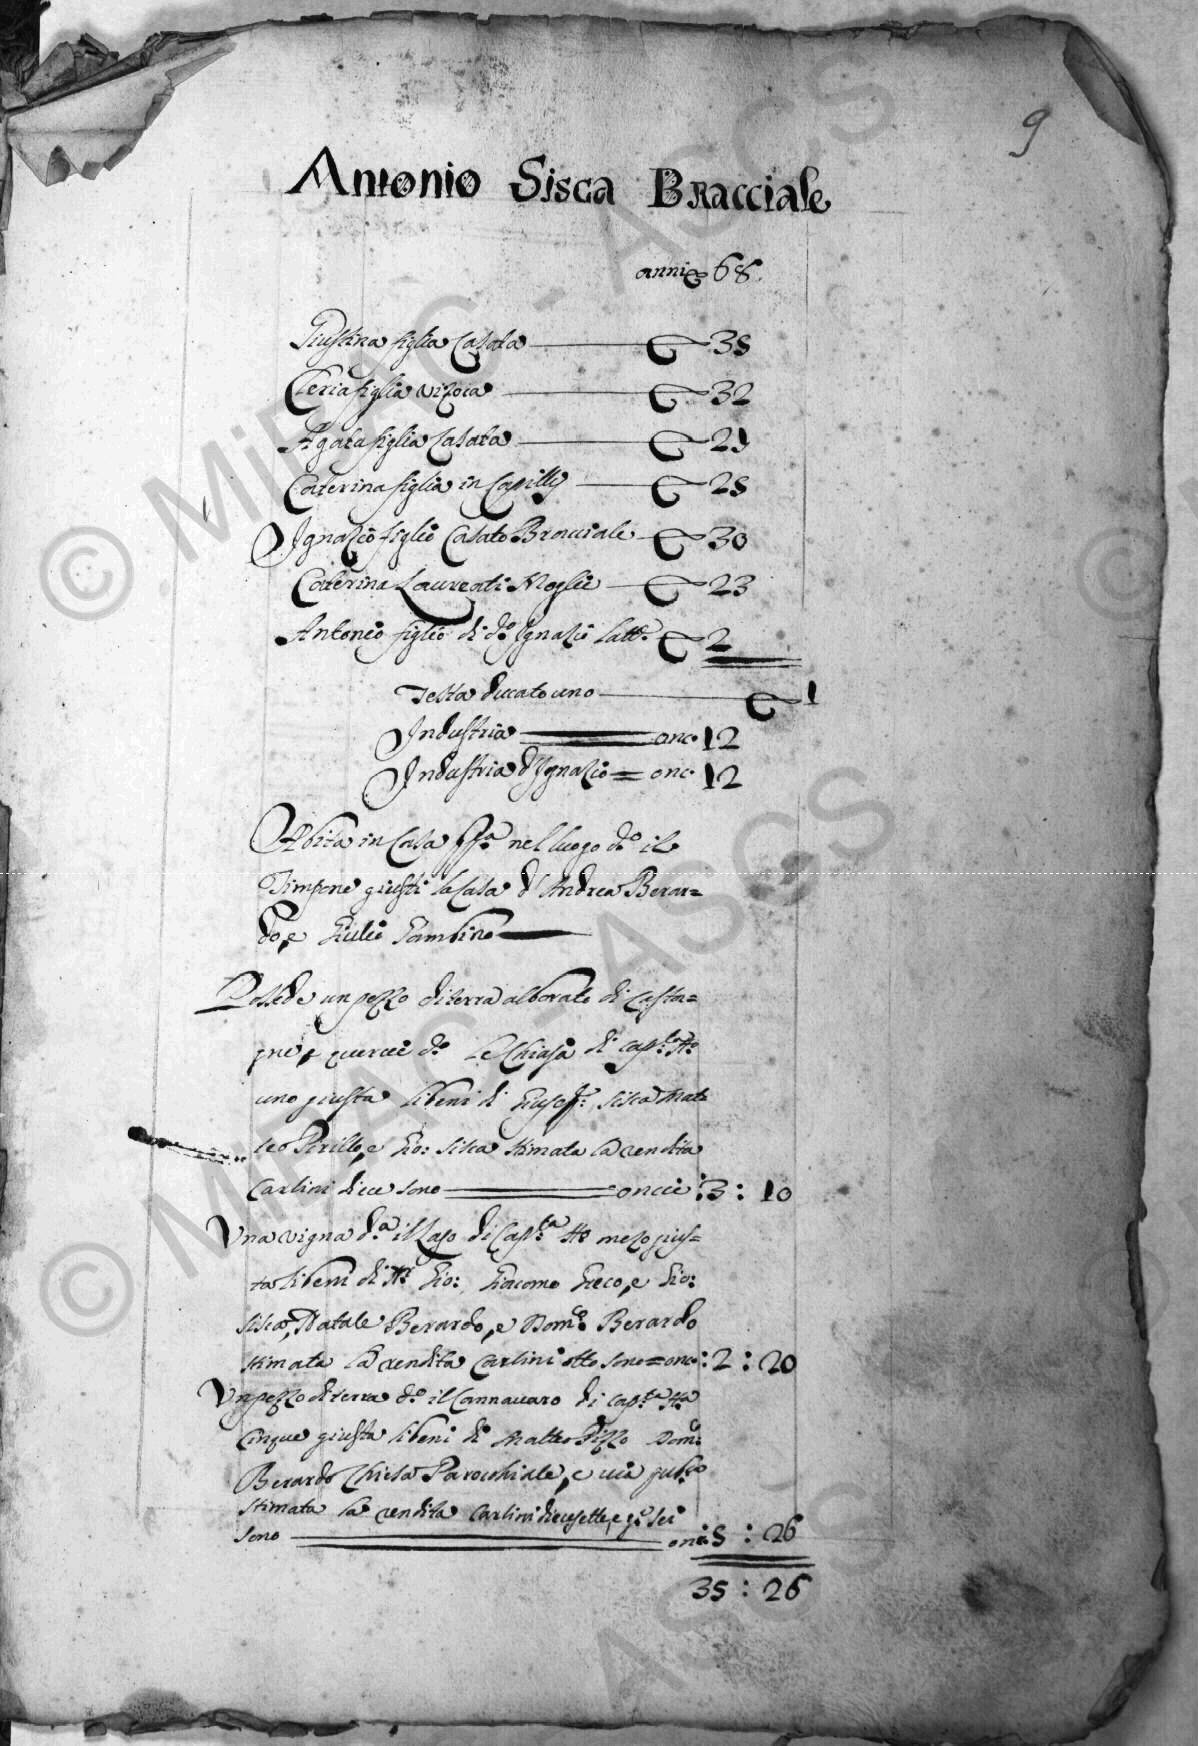 9
Antonio Sisca Bracciale
anni 68
Giustina figlia Casata 35
Cleria figlia vizoca 32
Agata figlia Casata 29
Caterina figlia in Capilli 25
Ignazio figlio Casato Bracciale 30
Caterina Laureati Moglie 23
Antonio figlio di do Ignazio latte 2
Testa ducato uno 1
Industria onc. 12
Industria d'Ignazio = onc. 12
Abita in Casa nel luogo do il
Timpone giusti la Casa d'Andrea Berar=
do, e Giulio Gambino
Possede un pezzo di terra alborato di Casta=
gne, e quercie do Le Chiasa di capta tta
uno giusta li beni di Giuseppe Sisca Mat=
teo Pirillo, e Gio: Sisca stimata la rendita
Carlini diece sono oncie : 3 : 10
Una vigna da il Lago di Capta tta mezo gius=
ta li beni di Gio: Giacomo Greco, e Gio:
Sisca, Natale Berardo, e Domco Berardo
stimata la rendita Carlini otto sono = onc. : 2 : 20
Un pezzo di terra do il Cannavaro di capta tta
Cinque giusta li beni di Matteo Pizzo Domco
Berardo Chiesa Parocchiale, e via publica
stimata la rendita Carlini diecesette, e gr. sei
sono onc. : 5 : 26
35 : 26
© MiBAC - ASCS
© MiBAC - ASCS
ASCS